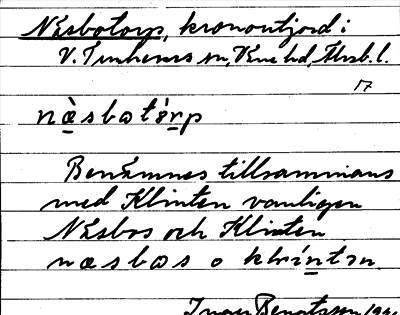 Näsbotorp, kronoutjord i
V. Tunhems sn, Väne hd, Älvsb. l.
næ̀sbɷtɷ́rp
Benämnes tillsammans
med Klinten vanligen
Näsbos och Klinten
næsbɷs o klìntən.
Ivar Bengtsson